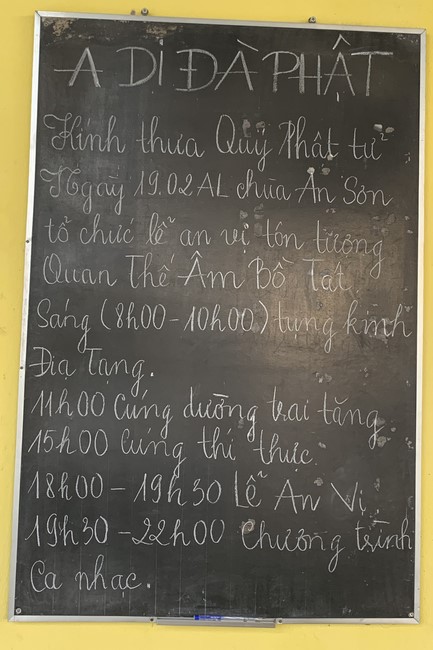 A DI ĐÀ PHẬT
Kính thưa Quý Phật tử
Ngày 19.02 AL chùa Ân Sơn
tổ chức lễ an vị tôn tượng
Quan Thế Âm Bồ Tát
Sáng (8h00-10h00) tụng kinh
Địa Tạng.
11h00 Cúng dường trai tăng
15h00 Cúng thí thực.
18h00 - 19h30 Lễ An Vị
19h30 - 22h00 Chương trình
Ca nhạc.